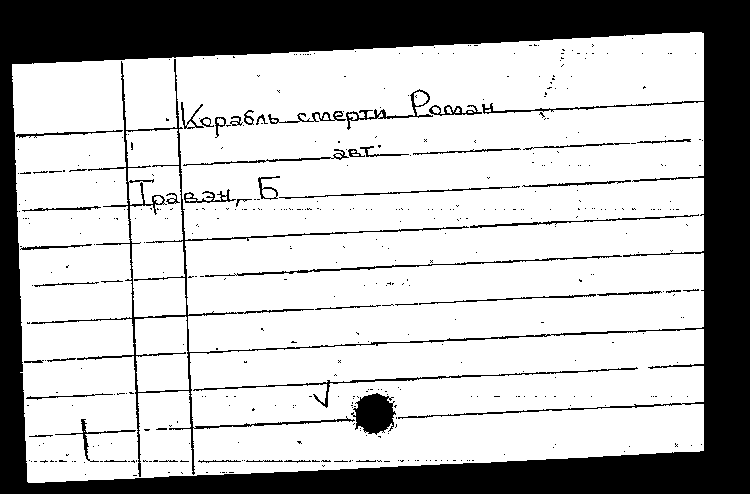 Корабль смерти. Роман
авт.
Траван, Б